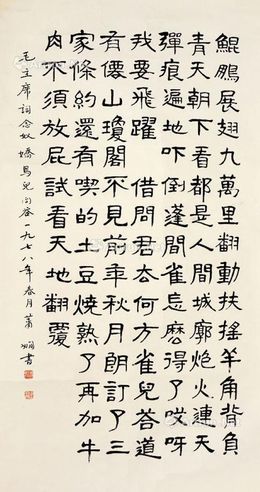 鯤鵬展翅九萬里翻動扶搖羊角背負
青天朝下看都是人間城廓炮火連天
彈痕遍地吓倒蓬間雀怎麼得了哎呀
我要飛躍 借問君去何方雀兒答道
有僊山瓊閣不見前年秋月朗訂了三
家條約還有喫的土豆燒熟了再加牛
肉不須放屁試看天地翻覆
毛主席詞念奴嬌鳥兒问答一九七八年春月蕭嫻書